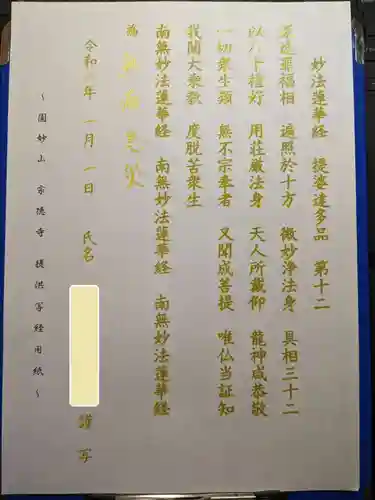 妙法蓮華経 提婆達多品 第十二
深達罪福相 遍照於十方 微妙浄法身 具相三十二
以八十種好 用荘厳法身 天人所戴仰 龍神咸恭敬
一切衆生類 無不宗奉者 又聞成菩提 唯仏当証知
我闡大乗教 度脱苦衆生
南無妙法蓮華経 南無妙法蓮華経 南無妙法蓮華経
為
令和 年 一月 一日 氏名 謹写
~ 圓妙山 宗隠寺 提供写経用紙 ~